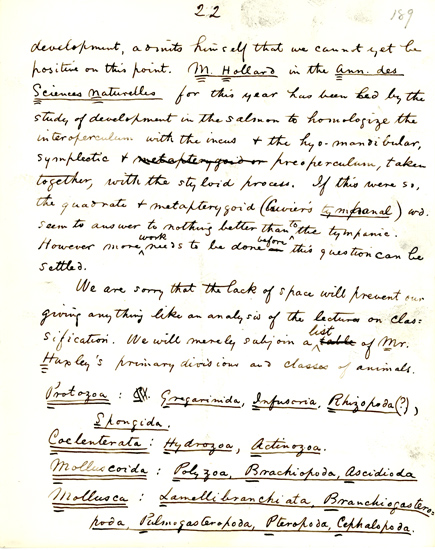 22
189
development, admits himself that we cannot yet be
positive on this point. M. Hollard in the Ann. des
Sciences Naturelles for this year has been led by the
study of development in the salmon to homologize the
interoperculum with the incus & the hyo-mandibular,
symplectic & metapterygoid or preoperculum, taken
together, with the styloid process. If this were so,
the quadrate & metapterygoid (Cuvier's tympanal) wd.
seem to answer to nothing better than to the tympanic.
However more work needs to be done before this question can be
settled.
We are sorry that the lack of space will prevent our
giving anything like an analysis of the lectures on clas-
sification. We will merely subjoin a list table of Mr.
Huxley's primary divisions and classes of animals.
Protozoa: Gregarinida, Infusoria, Rhizopoda(?),
Spongida.
Coelenterata: Hydrozoa, Actinozoa.
Molluscoida: Polyzoa, Brachiopoda, Ascidioda
Mollusca: Lamellibranchiata, Branchiogastero-
poda, Pulmogasteropoda, Pteropoda, Cephalopoda.